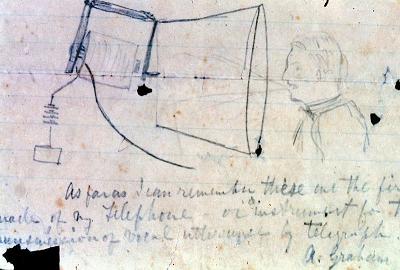 As far as I can remember these are the fir
made of my Telephone — or "instrument for t
ansmission of vocal utterances by telegraph.
A. Graham